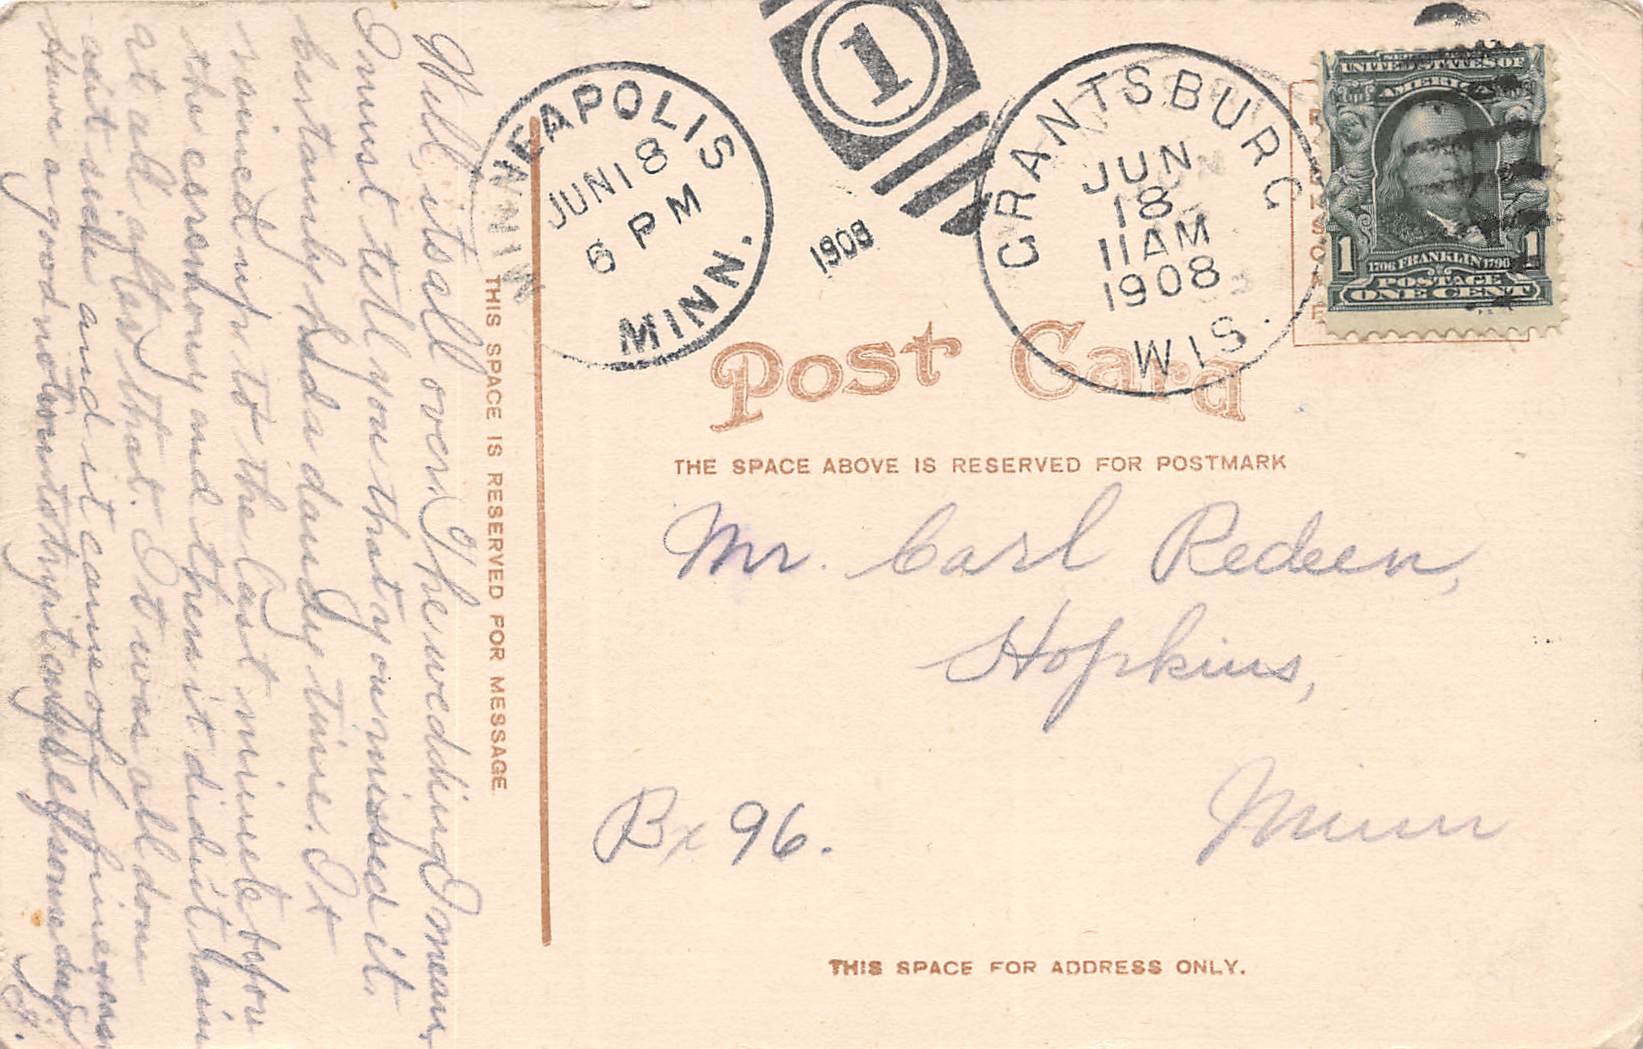 Well, its all over. The wedding I mean,
I must tell you that you missed it.
certainly had a dandy time. It
rained up to the last minute before
the ceremony and then it didn't rain
at all after that. It was all done
out side and it came off fine
Have a good notion to try it myself some day
MINNEAPOLIS
JUN 18
6 PM
MINN.
1908
1
GRANTSBURG
JUN
18
11 AM
1908
WIS.
UNITED STATES OF
AMERICA
1 1
1706 FRANKLIN 1790
POSTAGE
ONE CENT
THIS SPACE IS RESERVED FOR MESSAGE
Post Card
THE SPACE ABOVE IS RESERVED FOR POSTMARK
Mr. Carl Redeen,
Hopkins,
Bx 96. Minn
THIS SPACE FOR ADDRESS ONLY.